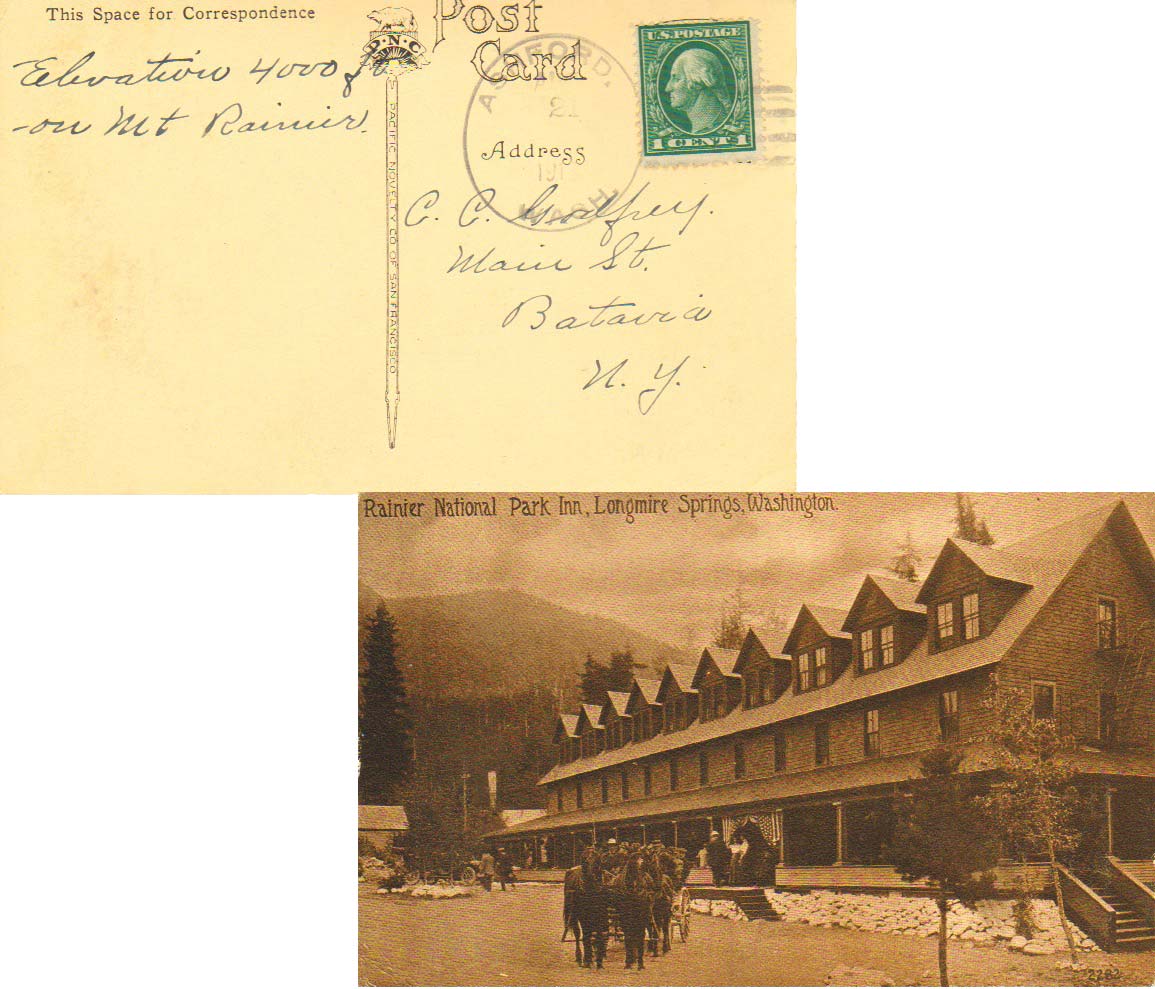 This Space for Correspondence
Post
Card
P.N.C.
Elevation 4000 ft
-on Mt Rainier.
PACIFIC NOVELTY CO OF SAN FRANCISCO
ASHFORD.
21
WASH.
U.S. POSTAGE
1 CENT 1
Address
C. C. Godfrey.
Main St.
Batavia
N. Y.
Rainier National Park Inn, Longmire Springs, Washington.
2282